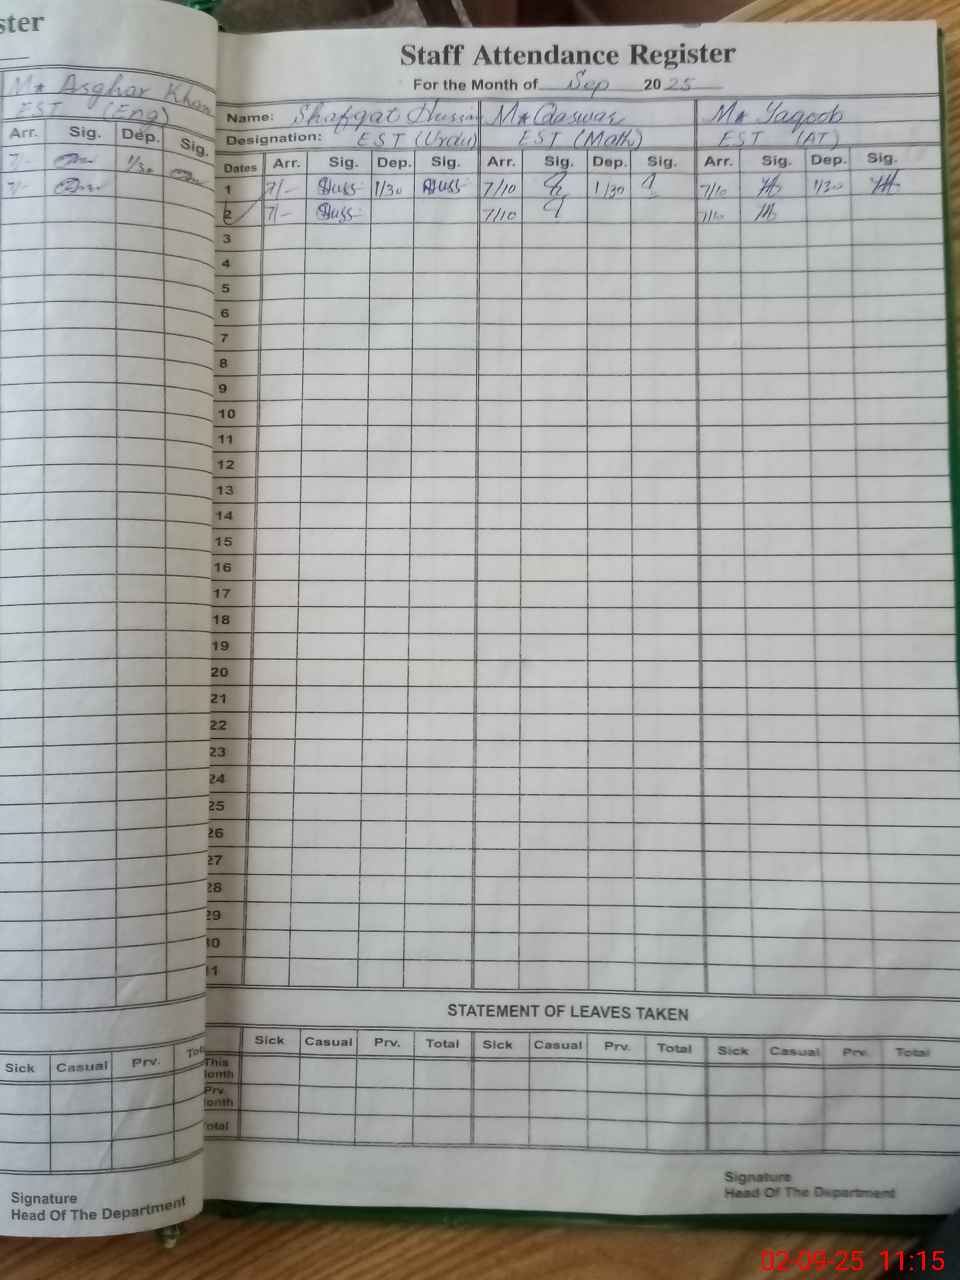 ster
M* Asghar Khan
EST (Eng)
Arr. Sig. Dep. Sig.
7/- 1/30
7/-
Sick Casual Prv. Tot
Signature
Head Of The Department
Staff Attendance Register
For the Month of Sep 2025
Name: Shafqat Hussain M* Qaswar M* Yaqoob
Designation: EST (Urdu) EST (Math) EST (AT)
Dates Arr. Sig. Dep. Sig. Arr. Sig. Dep. Sig. Arr. Sig. Dep. Sig.
1 7/- Huss 1/30 Huss 7/10 1/30 7/10 1/30
2 7/- Huss 7/10 7/10
3
4
5
6
7
8
9
10
11
12
13
14
15
16
17
18
19
20
21
22
23
24
25
26
27
28
29
30
31
STATEMENT OF LEAVES TAKEN
Sick Casual Prv. Total Sick Casual Prv. Total Sick Casual Prv. Total
This Month
Prv. Month
Total
Signature
Head Of The Department
02-09-25 11:15